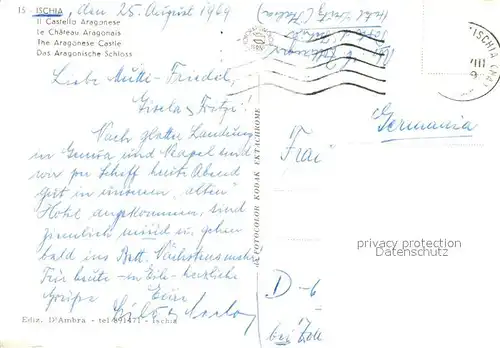 15 - ISCHIA, den 25. August 1969
Il Castello Aragonese
Le Château Aragonais
The Aragonese Castle
Das Aragonische Schloss
Liebe Mutti-Friedel,
Gisela, Fritzi!
Nach glatter Landung
in Genua und Neapel sind
wir per Schiff heute Abend
gut in unserem "alten"
Hotel angekommen, sind
ziemlich müde u. gehen
bald ins Bett. Nächstens mehr
Für heute - in Eile - herzliche
Eure
Ediz. D'Ambra - tel 891471 - Ischia
FOTOCOLOR KODAK EKTACHROME
ISCHIA
Germania
Frau
D-6
bei
privacy protection
Datenschutz